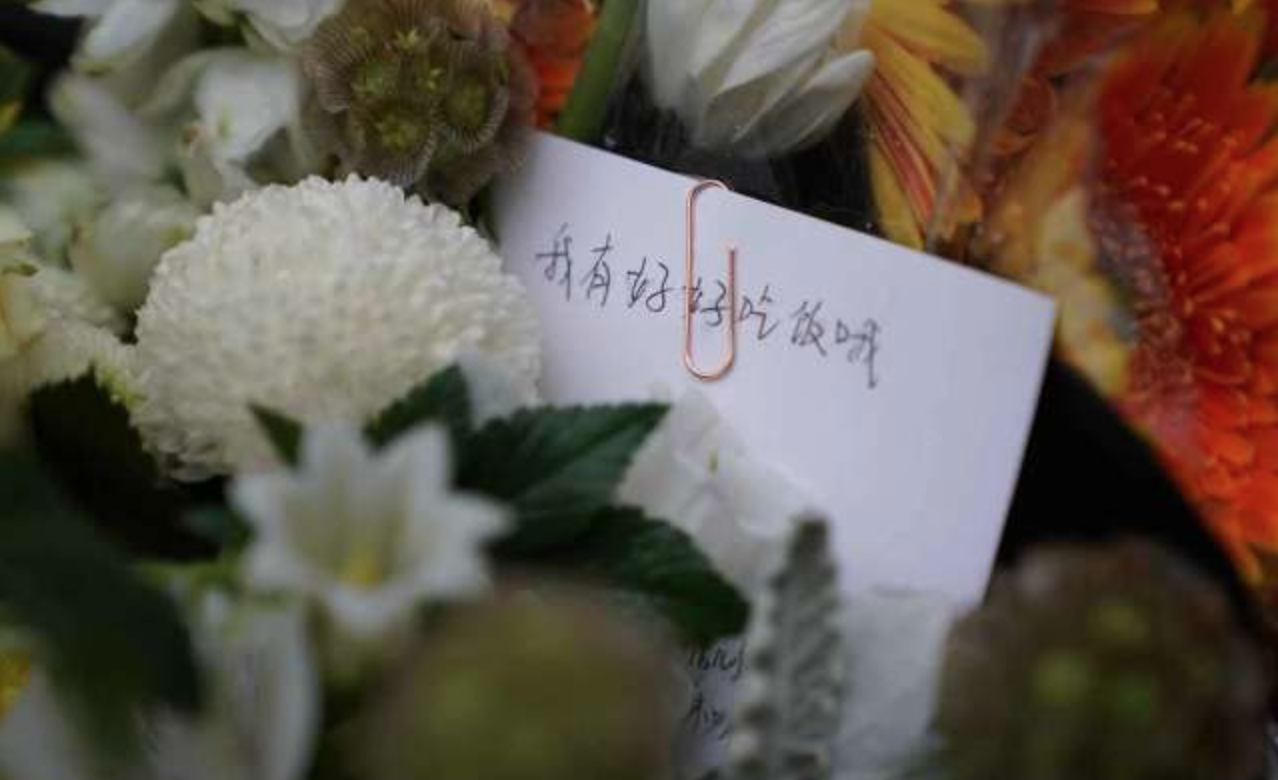 我有好好吃饭哦